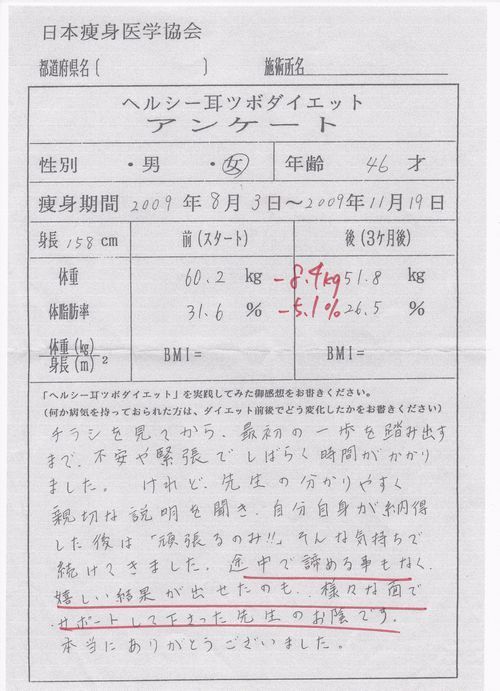 日本痩身医学協会
都道府県名(　　　　　　) 施術所名
ヘルシー耳ツボダイエット
アンケート
性別 ・男 ・女 年齢 46 才
痩身期間 2009 年 8 月 3 日～2009年 11 月 19 日
身長 158 cm 前(スタート) 後(3ケ月後)
体重 60.2 kg -8.4kg 51.8 kg
体脂肪率 31.6 % -5.1% 26.5 %
体重(kg)
身長(m)2 BMI= BMI=
「ヘルシー耳ツボダイエット」を実践してみた御感想をお書きください。
(何か病気を持っておられた方は、ダイエット前後でどう変化したかをお書きください)
チラシを見てから、最初の一歩を踏み出す
まで、不安や緊張でしばらく時間がかかり
ました。 けれど、先生の分かりやすく
親切な説明を聞き、自分自身が納得
した後は「頑張るのみ!!」そんな気持ちで
続けてきました。途中で諦める事もなく、
嬉しい結果が出せたのも、様々な面で
サポートして下さった先生のお陰です。
本当にありがとうございました。